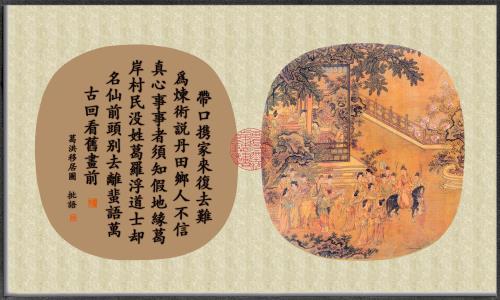 帶口携家來復去難
爲煉術説丹田鄉人不信
真心事事者須知假地緣葛
岸村民没姓葛羅浮道士却
名仙前頭别去離蜚語萬
古回看舊畫前
葛洪移居圖 批語